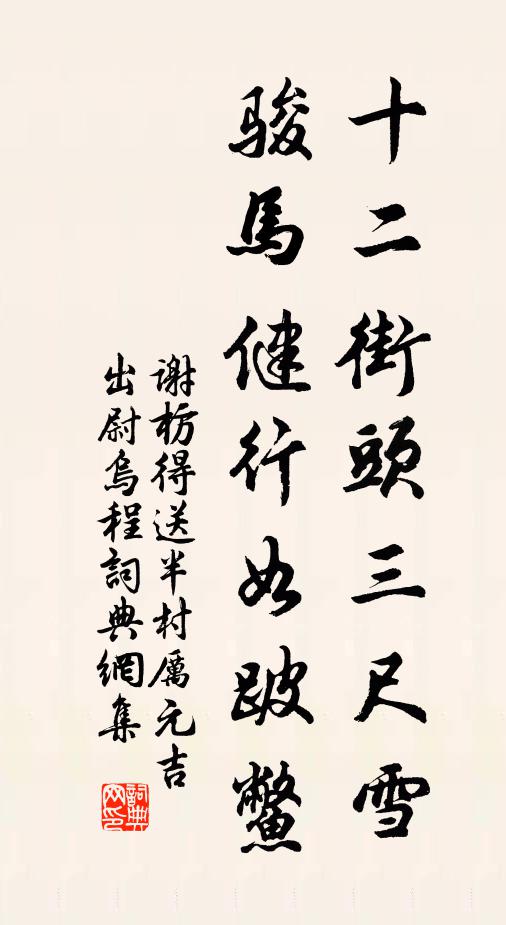 十二街頭三尺雪
駿馬健行如跛鱉
謝枋得送半村厲元吉
出尉烏程詞典網集
詞典網印